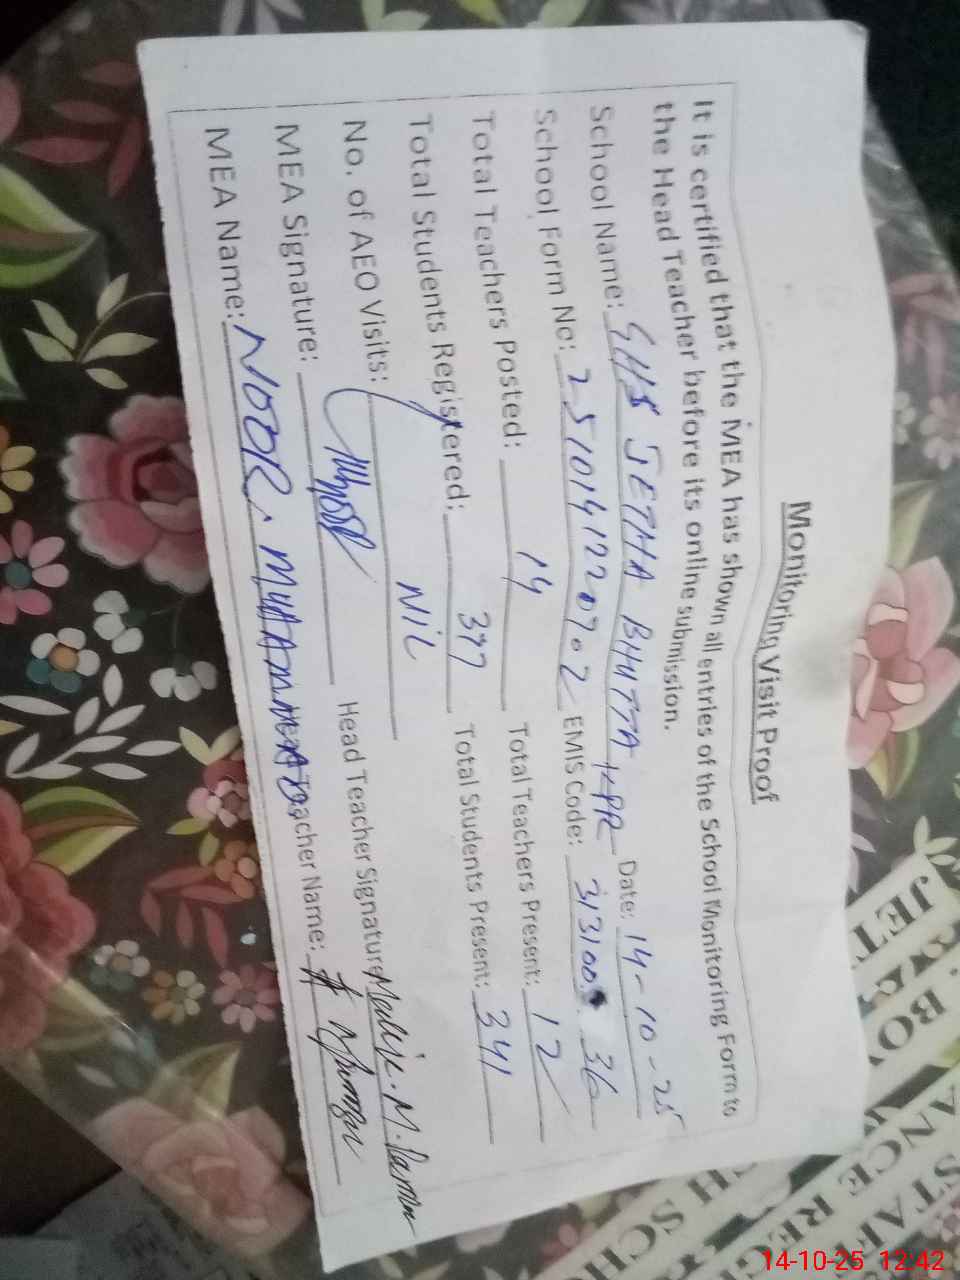 Monitoring Visit Proof
It is certified that the MEA has shown all entries of the School Monitoring Form to
the Head Teacher before its online submission.
School Name: GHS JETHA BHUTTA KPR Date: 14-10-25
School Form No: 2510141220702 EMIS Code: 313100 36
Total Teachers Posted: 14 Total Teachers Present: 12
Total Students Registered: 377 Total Students Present: 341
No. of AEO Visits: NIL
MEA Signature: Head Teacher Signature Malik. M.
MEA Name: NOOR. MUHAMMAD Teacher Name:
JET
BOY
STAFF
ANCE REG
H SCHO
14-10-25 12:42